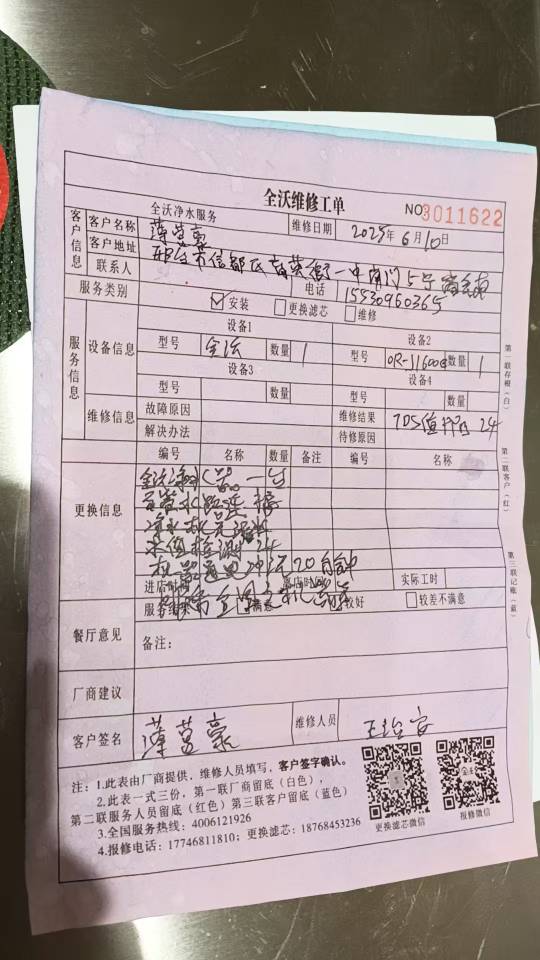 全沃维修工单
NO 3011622
全沃净水服务
客户信息
客户名称
维修日期 2025年6月10日
客户地址 邢台市信都区育英街一中南门5号
联系人
电话 15530960365
服务类别 安装 更换滤芯 维修
服务信息
设备信息
设备1 设备2
型号 全沃 数量 1 型号 OR-J1600 数量 1
设备3 设备4
型号 数量 型号 数量
维修信息
故障原因 维修结果 TDS值 24
解决办法 待修原因
更换信息
编号 名称 数量 备注 编号 名称
全沃净水器 一台
水路连接
水值检测 24
机器通电冲洗20分钟
进店时间 离店时间 实际工时
服务结果 满意 较好 较差不满意
餐厅意见
备注：
厂商建议
客户签名
维修人员
第一联存根（白）
第二联客户（红）
第三联记账（蓝）
注：1.此表由厂商提供，维修人员填写，客户签字确认。
2.此表一式三份，第一联厂商留底（白色），
第二联服务人员留底（红色）第三联客户留底（蓝色）
3.全国服务热线：4006121926
4.报修电话：17746811810；更换滤芯：18768453236
更换滤芯微信
报修微信